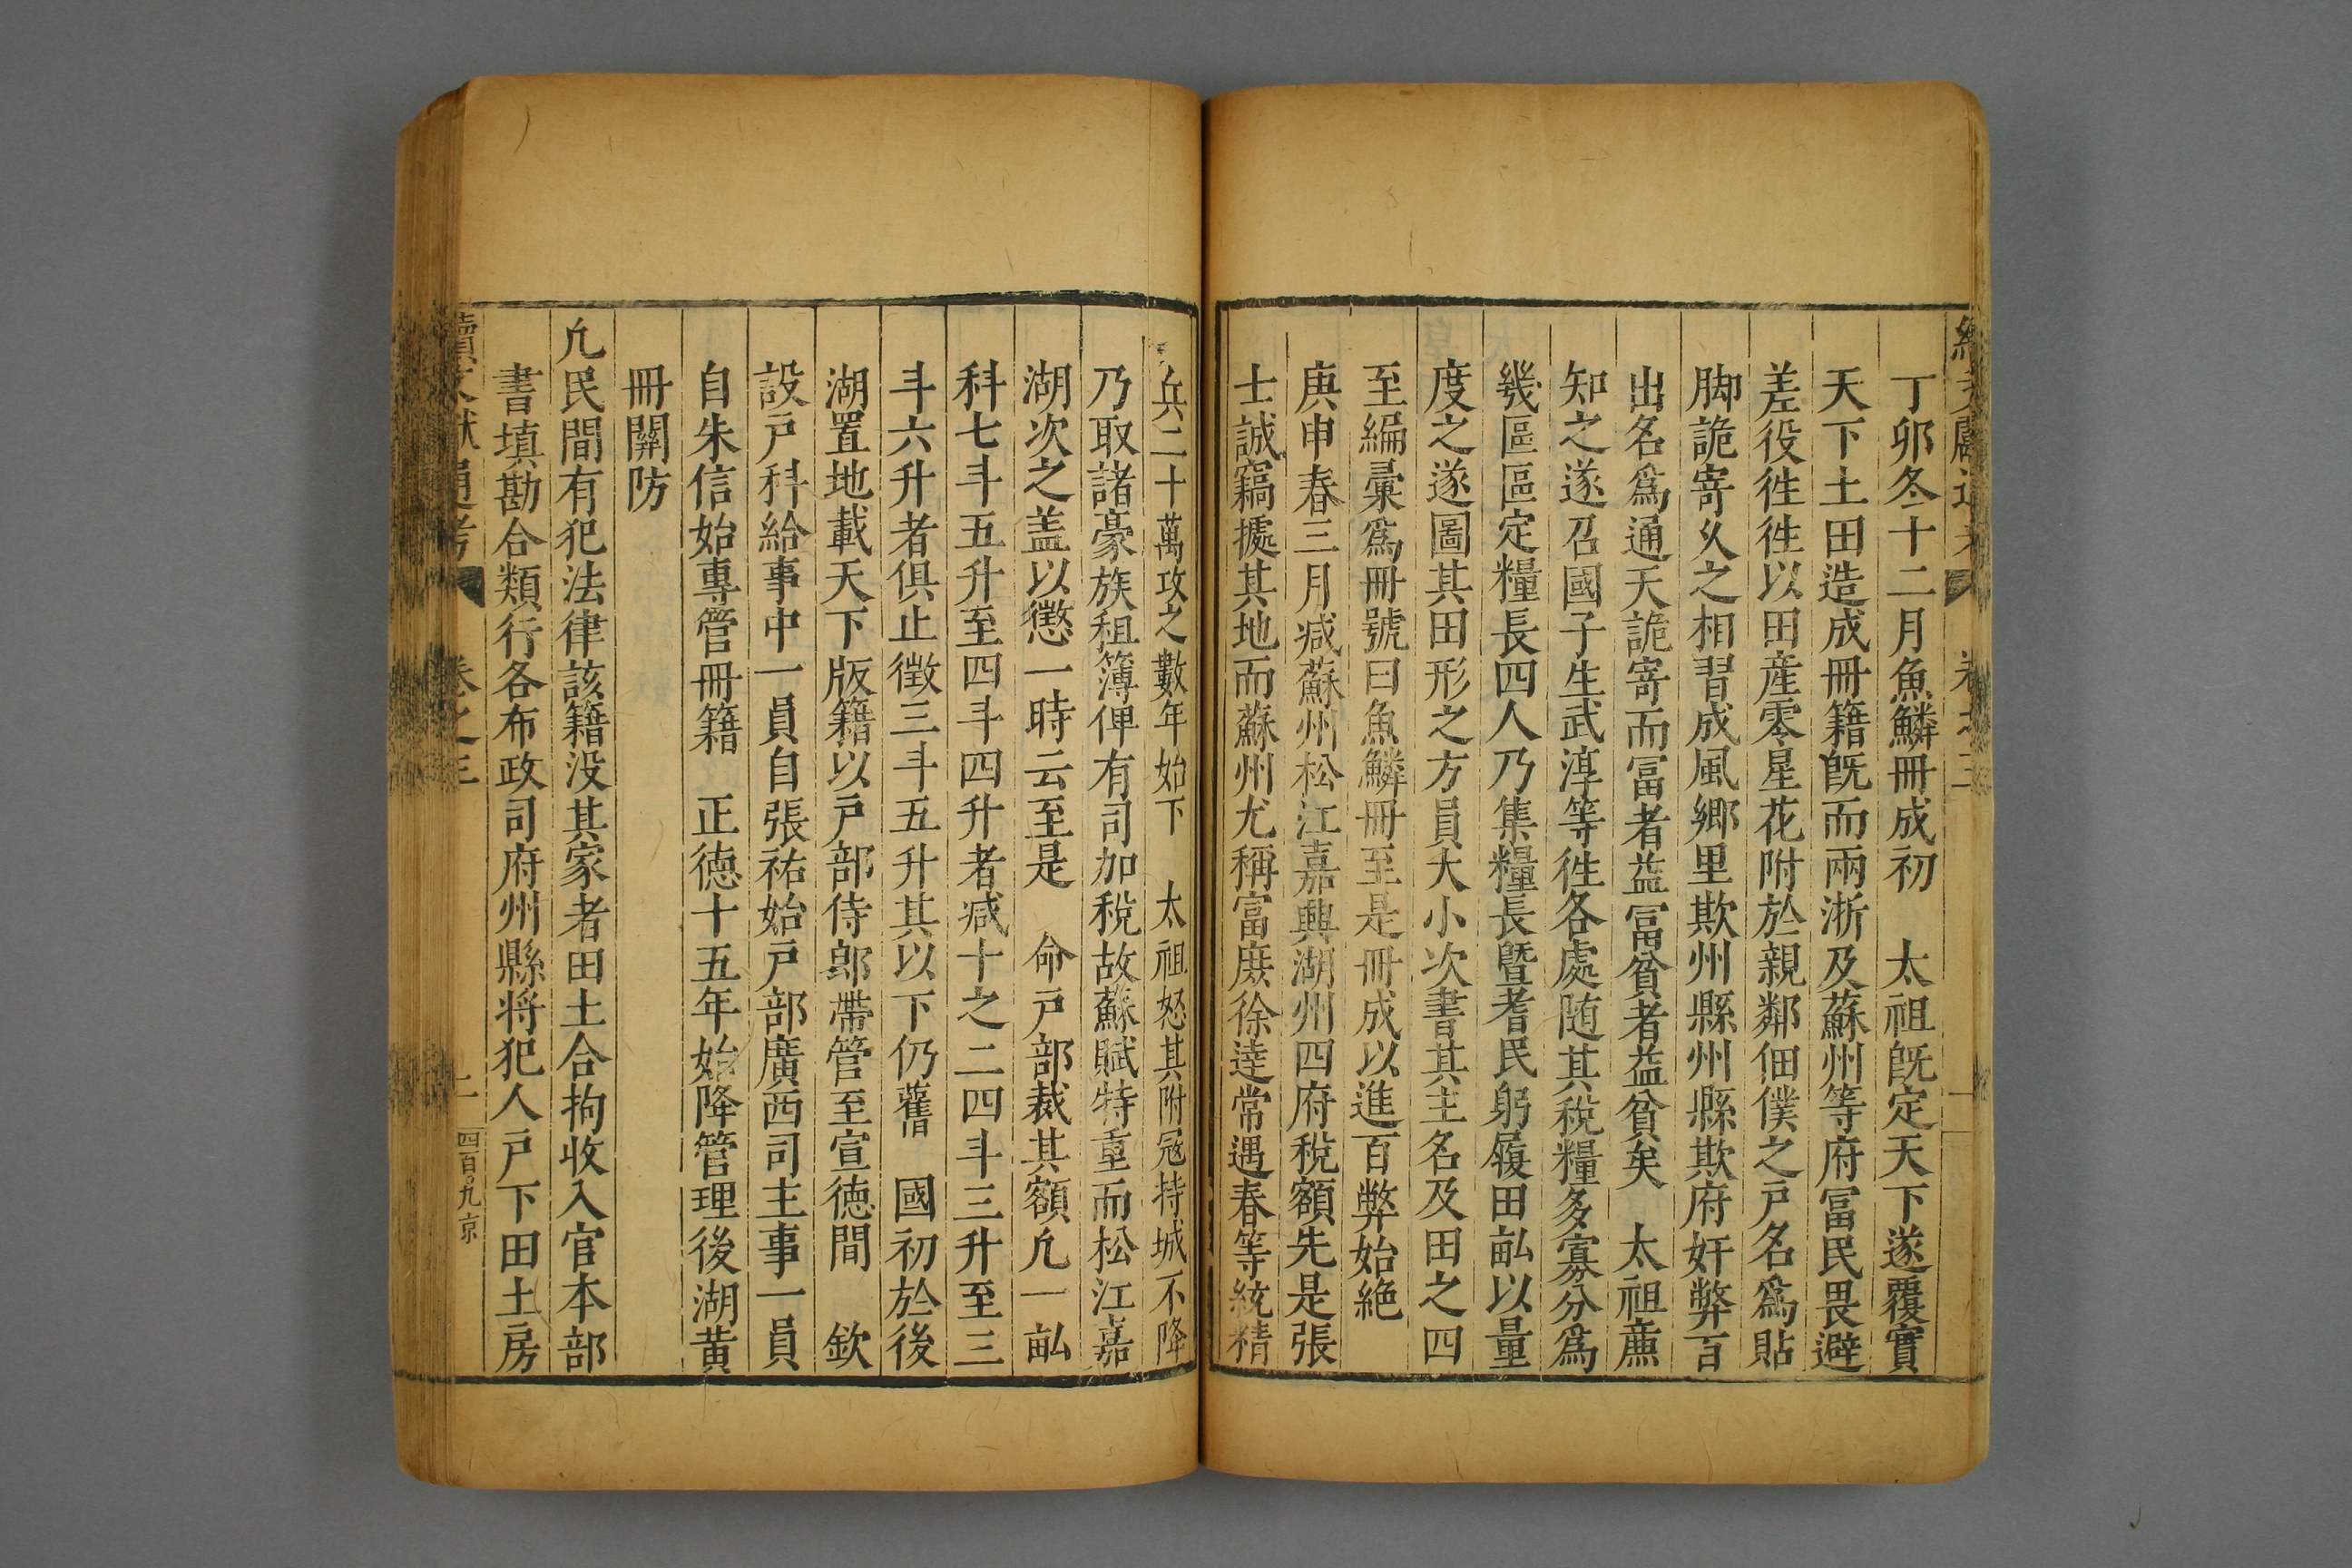 丁卯冬十二月魚鱗冊成初　太祖既定天下遂覆實
天下土田造成冊籍既而兩浙及蘇州等府冨民畏避
差役徃徃以田產零星花附於親鄰佃僕之戶名爲貼
脚詭寄久之相習成風鄉里欺州縣州縣欺府奸弊百
出名爲通天詭寄而冨者益冨貧者益貧矣　太祖廉
知之遂召國子生武淳等徃各處随其稅糧多寡分爲
幾區區定糧長四人乃集糧長曁耆民躬履田畝以量
度之遂圖其田形之方員大小次書其主名及田之四
至編彚爲冊號曰魚鱗冊至是冊成以進百弊始絶
庚申春三月减蘇州松江嘉興湖州四府稅額先是張
士誠竊據其地而蘇州尤稱富庶徐達常遇春等統精
兵二十萬攻之數年始下　太祖怒其附寇持城不降
乃取諸豪族租簿俾有司加稅故蘇賦特重而松江嘉
湖次之盖以懲一時云至是　命戶部裁其額凢一畝
科七斗五升至四斗四升者减十之二四斗三升至三
斗六升者俱止徵三斗五升其以下仍舊　國初於後
湖置地載天下版籍以戶部侍郎帶管至宣德間　欽
設戶科給事中一員自張祐始戶部廣西司主事一員
自朱信始專管冊籍　正德十五年始降管理後湖黃
冊關防
凢民間有犯法律該籍没其家者田土合拘收入官本部
書填勘合類行各布政司府州縣将犯人戶下田土房
續文獻通考　卷之三　二　四百九　京